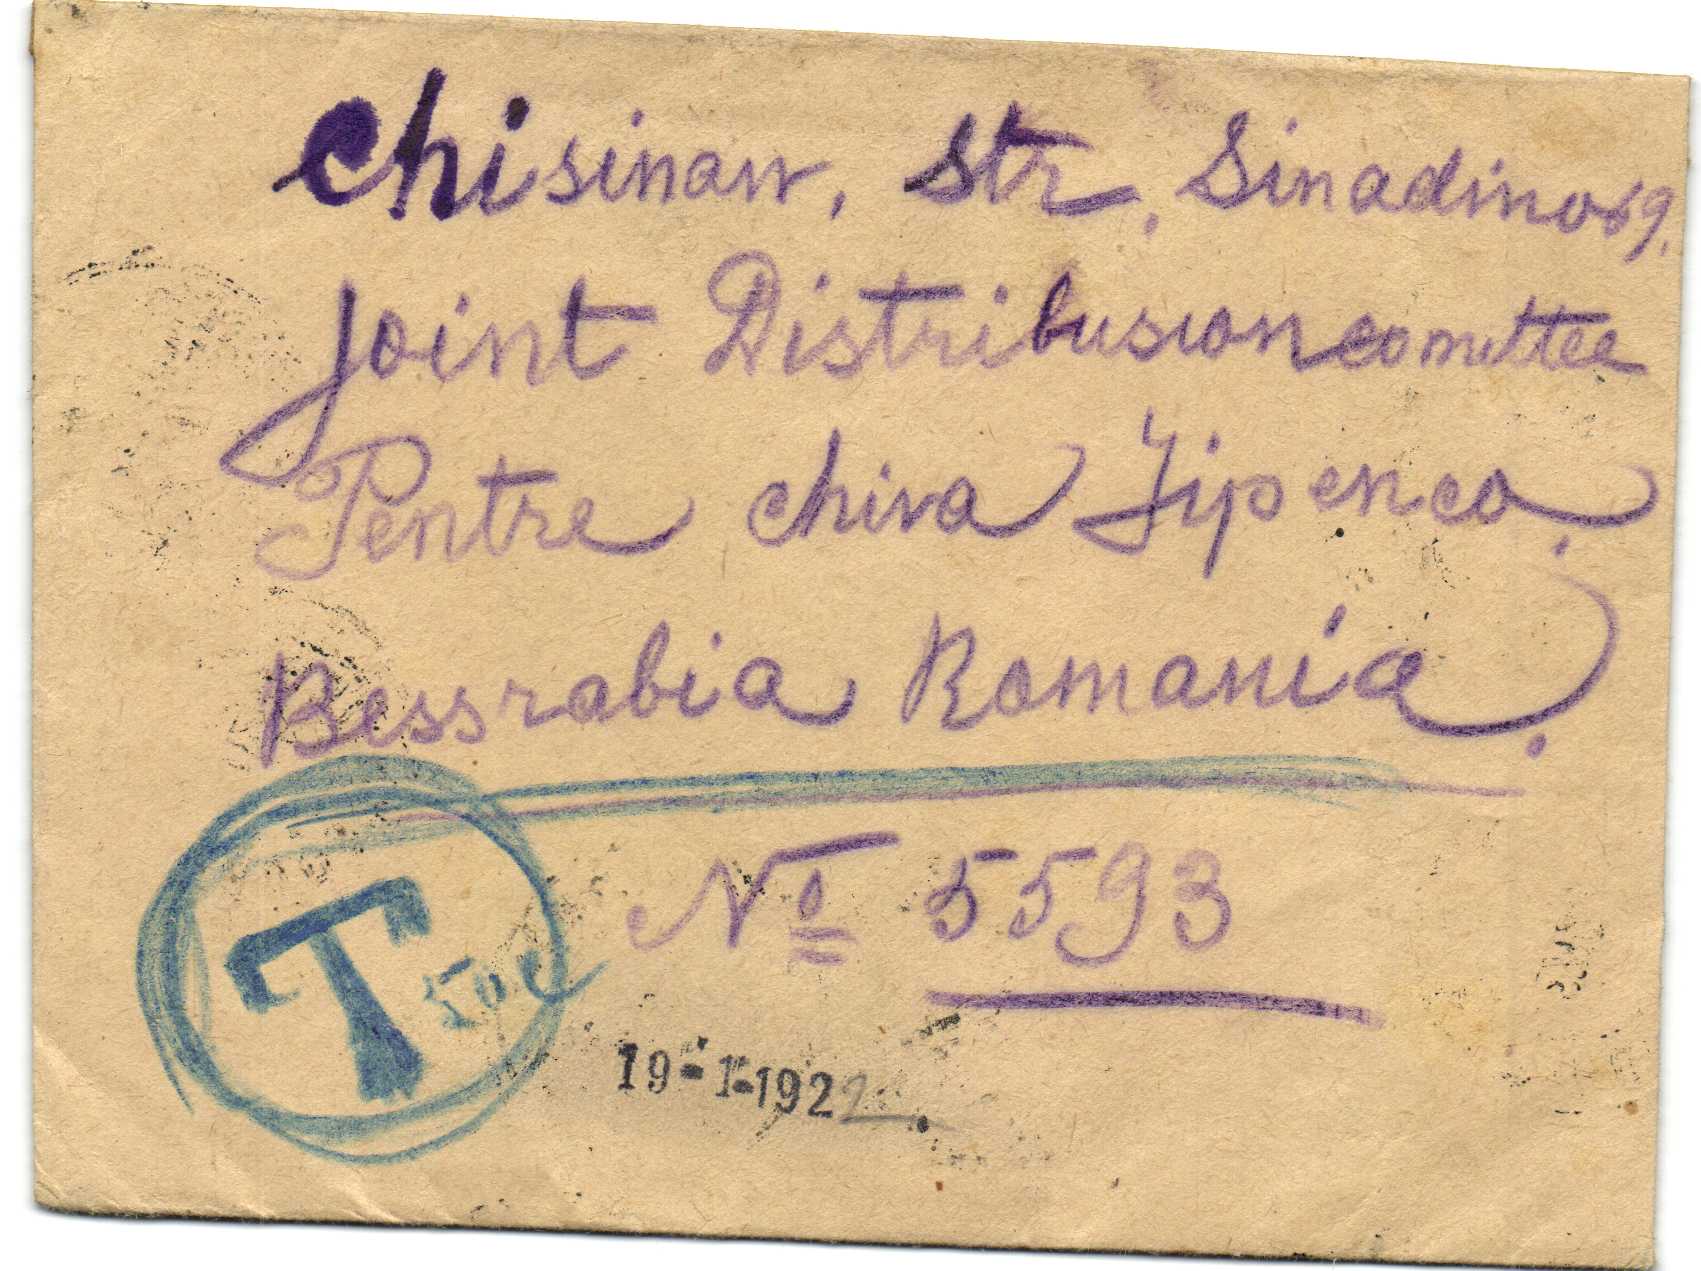 Chisinau, Str. Sinadino 69.
Joint Distribusioncomittee
Pentre Chiva Tipenco.
Bessrabia Romania.
No 5593
T
50 c
19-1-1922